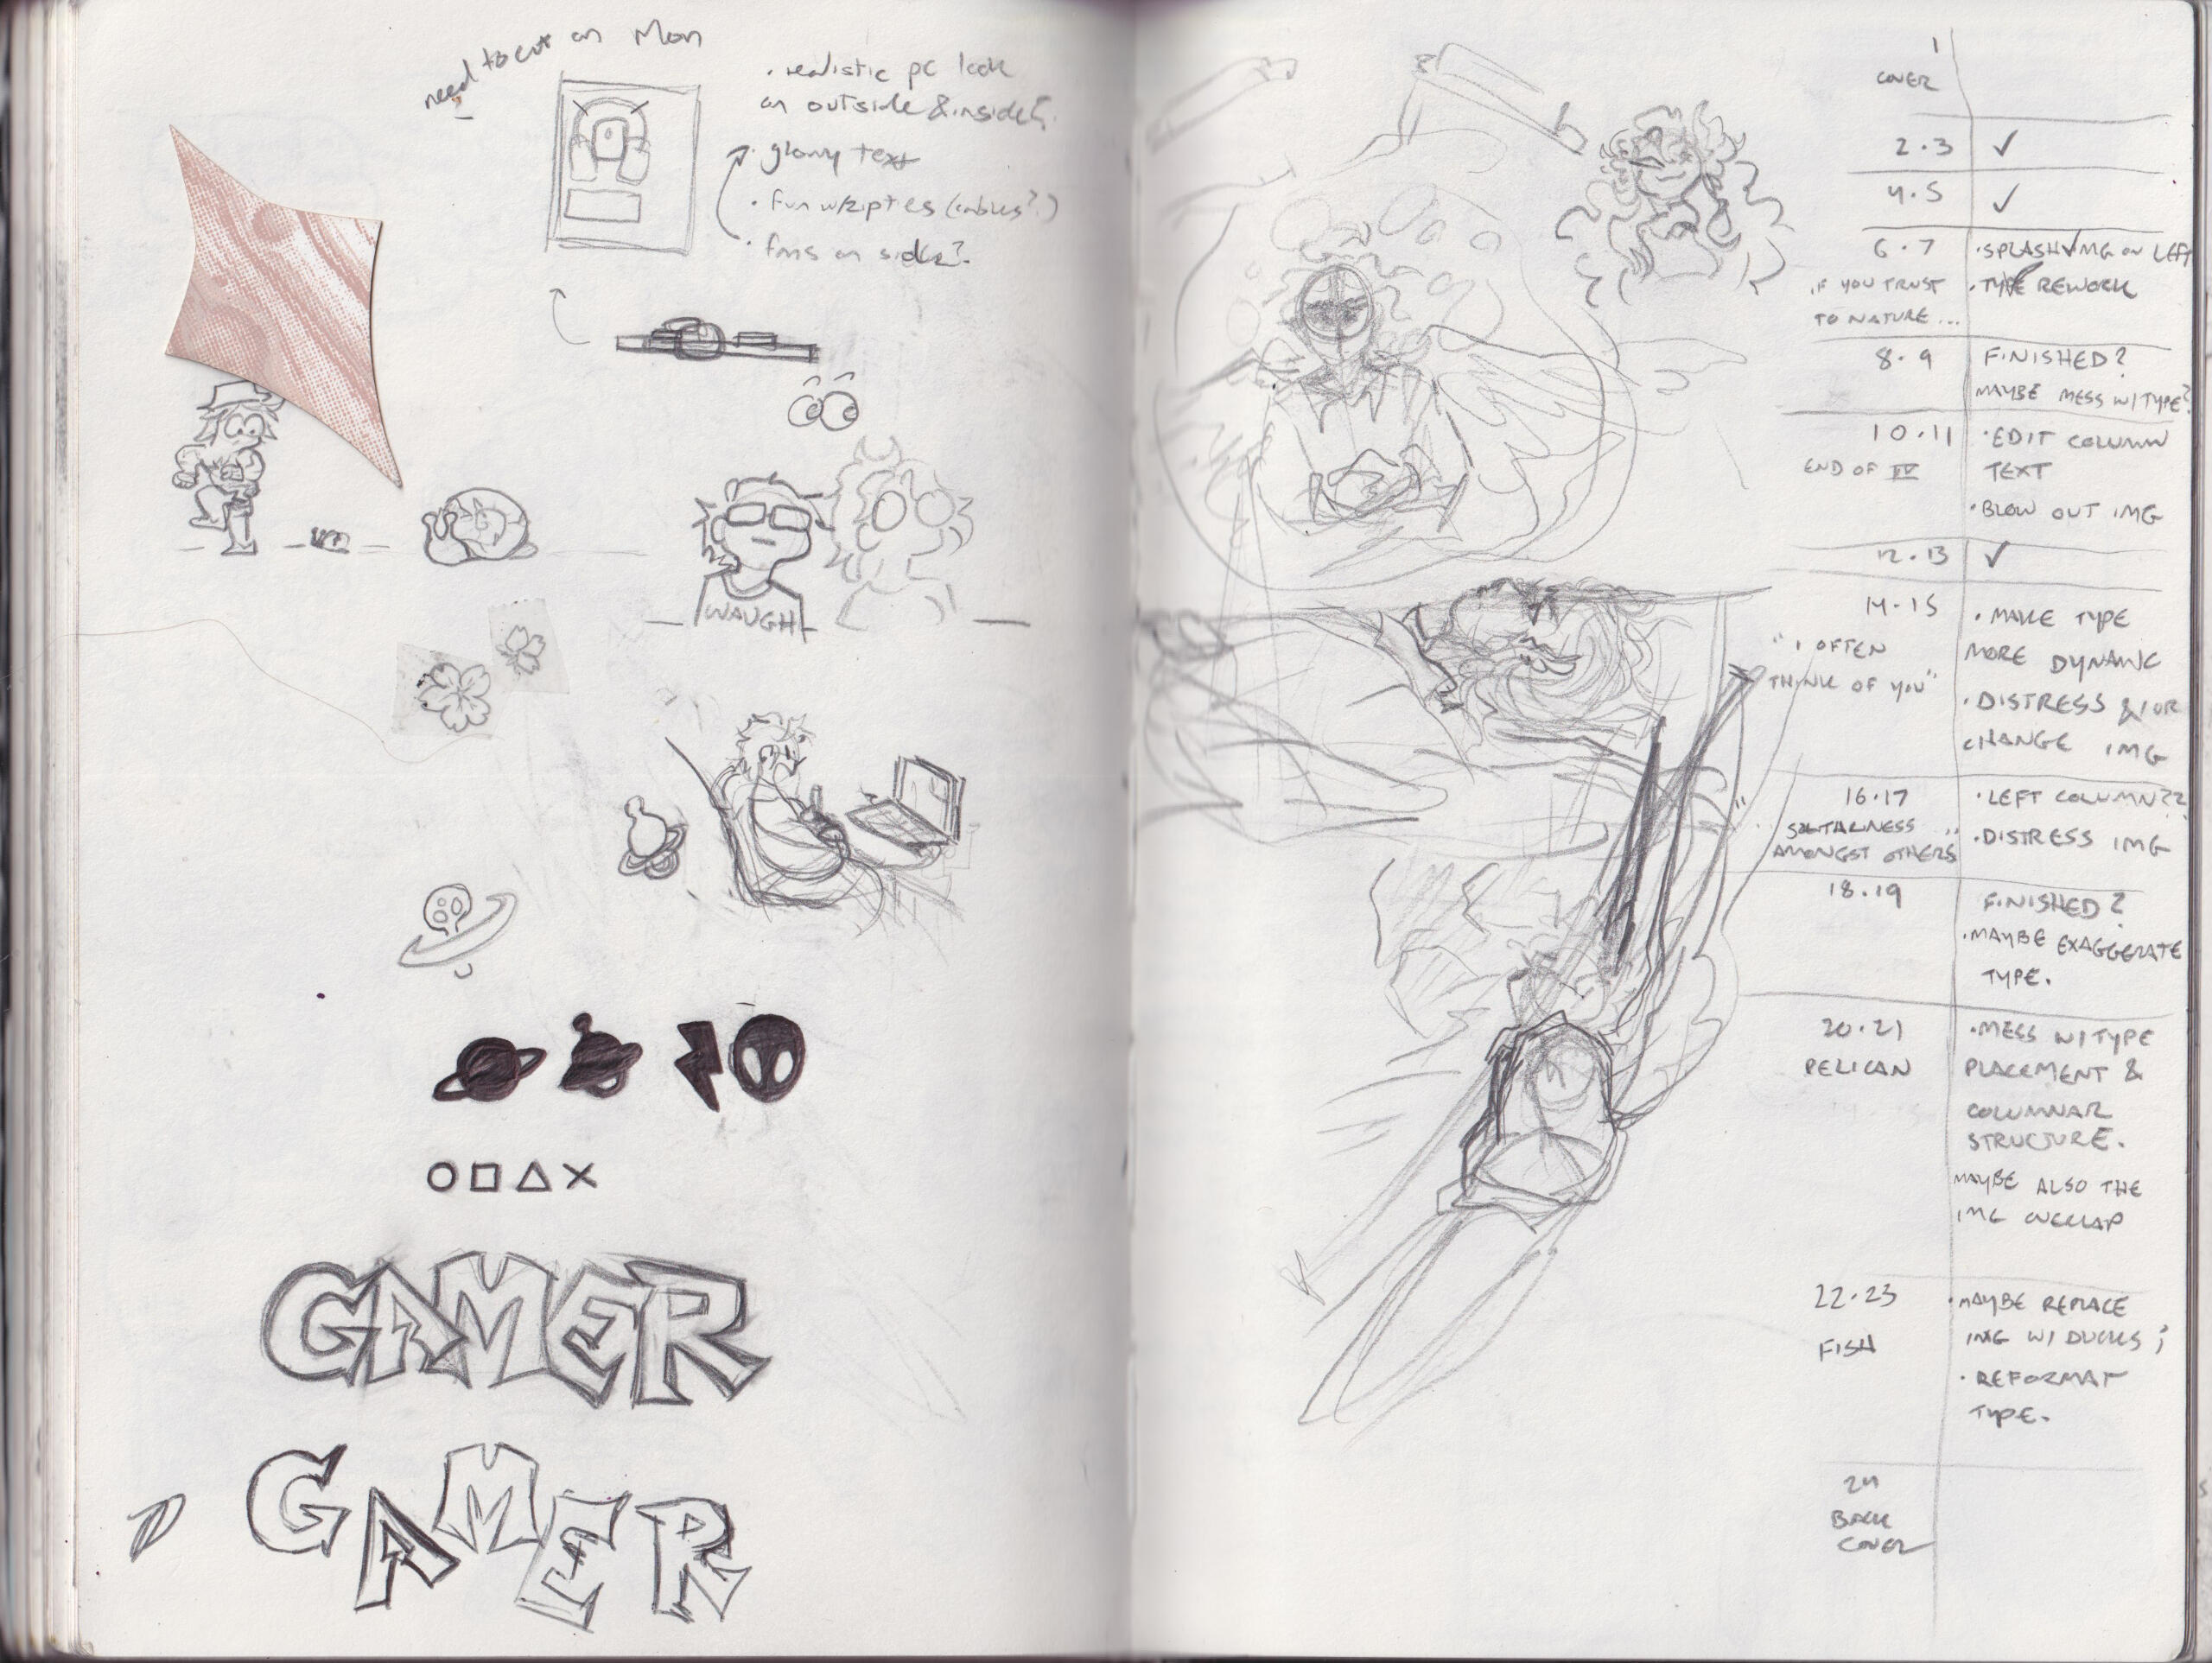 need to cut on Mon
· realistic pc look
on outside & inside?
· glowy text
· fun w/zipties (cables?)
· fans on side?
WAUGH
GAMER
GAMER
1
COVER
2·3 ✓
4·5 ✓
6·7 · SPLASH IMG ON LEFT
IF YOU TRUST · TYPE REWORK
TO NATURE...
8·9 FINISHED?
MAYBE MESS W/ TYPE?
10·11 · EDIT COLUMN
END OF IV TEXT
· BLOW OUT IMG
12·13 ✓
14·15 · MAKE TYPE
"I OFTEN MORE DYNAMIC
THINK OF YOU" · DISTRESS &/OR
CHANGE IMG
16·17 · LEFT COLUMN??
" · DISTRESS IMG
AMONGST OTHERS"
18·19 FINISHED?
· MAYBE EXAGGERATE
TYPE.
20·21 · MESS W/ TYPE
PELICAN PLACEMENT &
COLUMNAR
STRUCTURE.
MAYBE ALSO THE
IMG OVERLAP
22·23 · MAYBE REPLACE
FISH IMG W/ DUCKS;
· REFORMAT
TYPE.
24
BACK
COVER